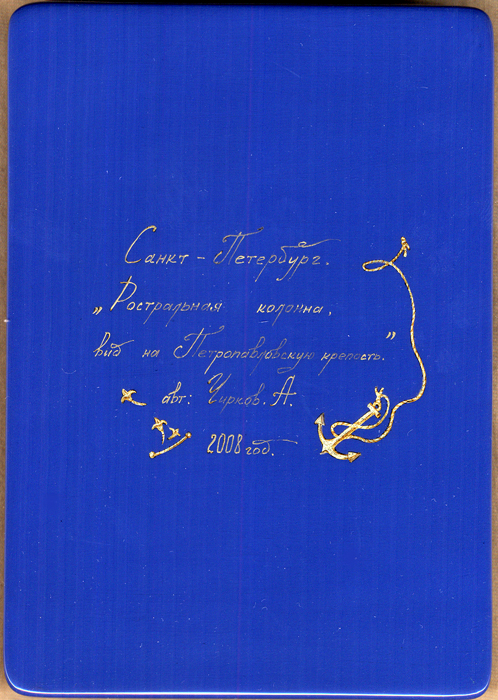 Санкт - Петербург.
„Ростральная колонна,
вид на Петропавловскую крепость."
авт: Чирков. А.
2008 год.